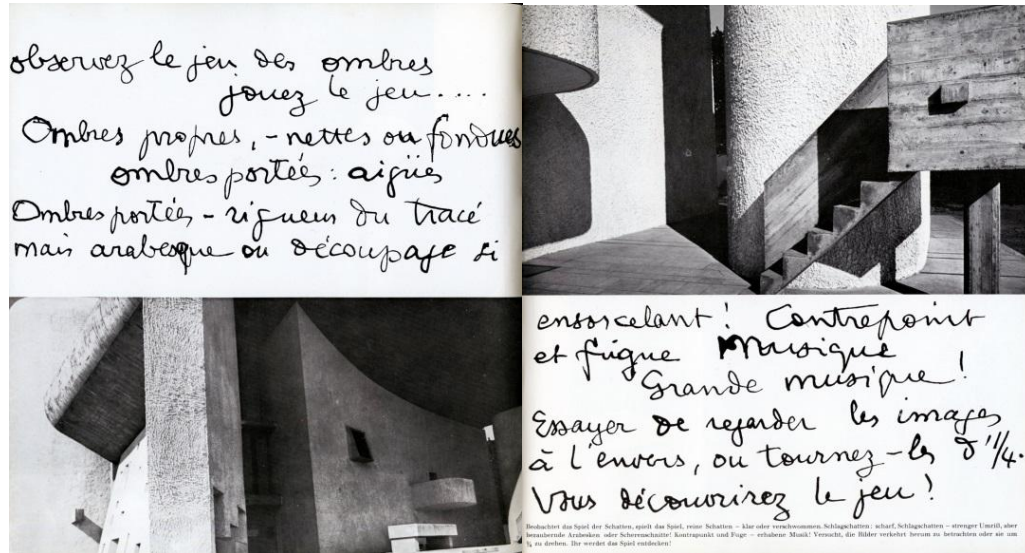 observez le jeu des ombres
jouez le jeu....
Ombres propres, - nettes ou fondues
ombres portées : aigües
Ombres portées - rigueur du tracé
mais arabesque ou découpage si
ensorcelant ! Contrepoint
et fugue Musique
Grande musique !
Essayer de regarder les images
à l'envers, ou tournez-les d'1/4.
Vous découvrirez le jeu !
Beobachtet das Spiel der Schatten, spielt das Spiel, reine Schatten – klar oder verschwommen. Schlagschatten: scharf, Schlagschatten – strenger Umriß, aber
bezaubernde Arabesken oder Scherenschnitte! Kontrapunkt und Fuge – erhabene Musik! Versucht, die Bilder verkehrt herum zu betrachten oder sie um
¼ zu drehen. Ihr werdet das Spiel entdecken!